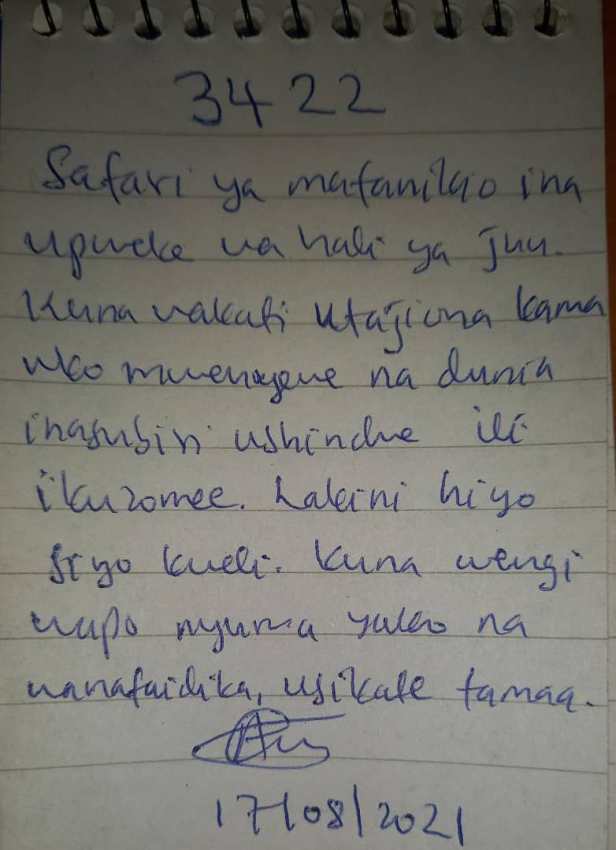 3422
Safari ya mafanikio ina
upweke wa hali ya juu.
Kuna wakati utajiona kama
uko mwenyewe na dunia
inasubiri ushindwe ili
ikuzomee. Lakini hiyo
siyo kweli. Kuna wengi
wapo nyuma yako na
wanafaidika, usikate tamaa.
17/08/2021